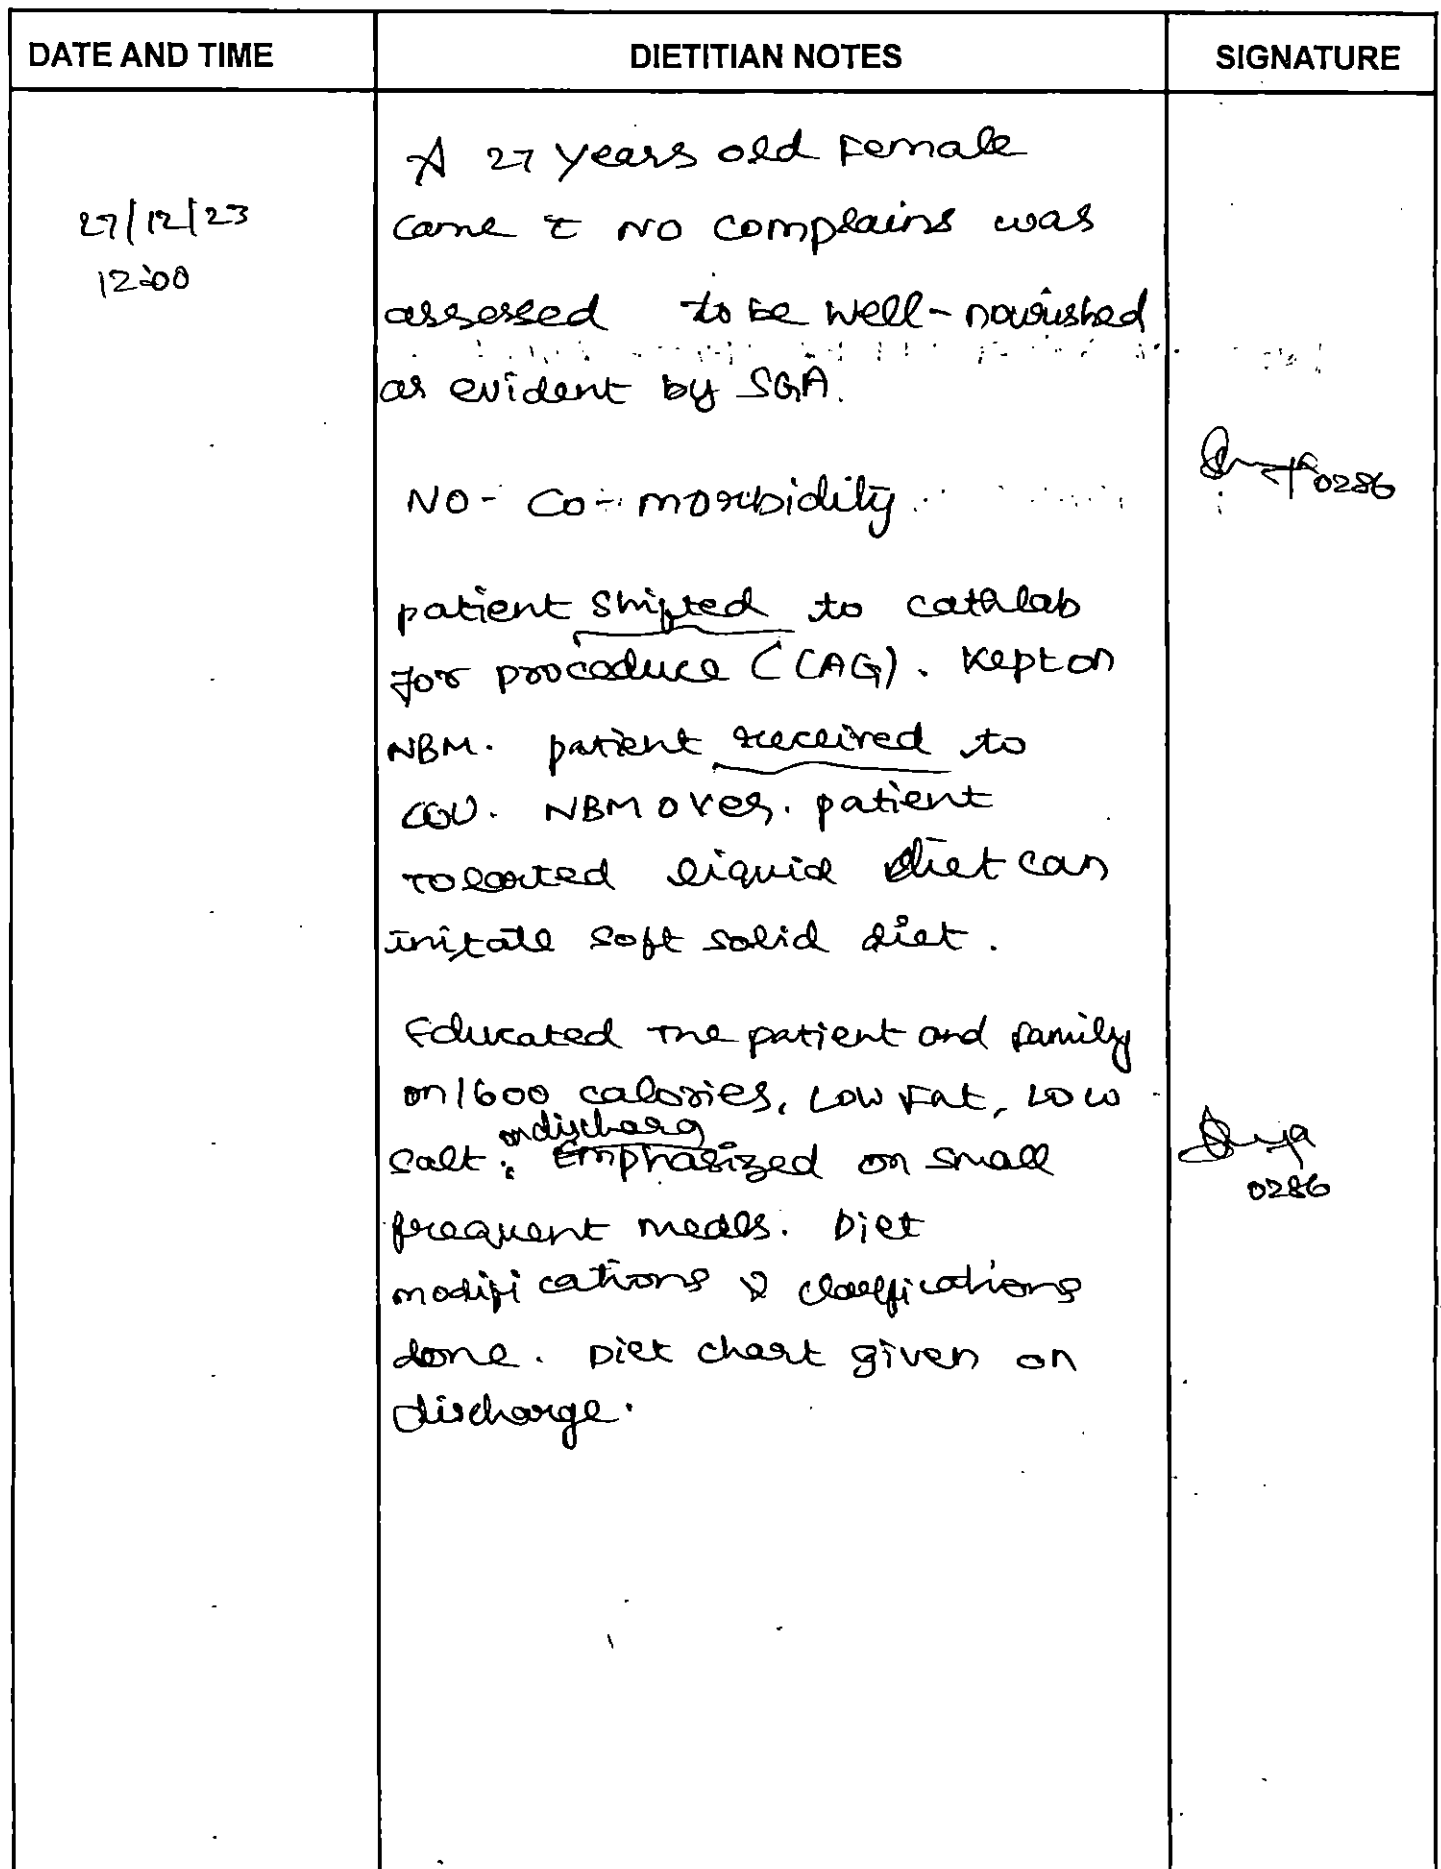 DATE AND TIME
DIETITIAN NOTES
SIGNATURE
27/12/23
12:00
A 27 years old Female
came c̄ NO complains was
assessed to be well-nourished
as evident by SGA.
NO-Co-morbidity
0286
patient shifted to cathlab
for procedure (CAG). Kept on
NBM. patient received to
CCU. NBM over. patient
diet can liquid
initate soft solid diet.
Educated the patient and family
on 1600 calories, Low Fat, Low
on discharg
salt. Emphasized on small
0286
frequent meals. Diet
modifications & clarifications
done. Diet chart given on
discharge.